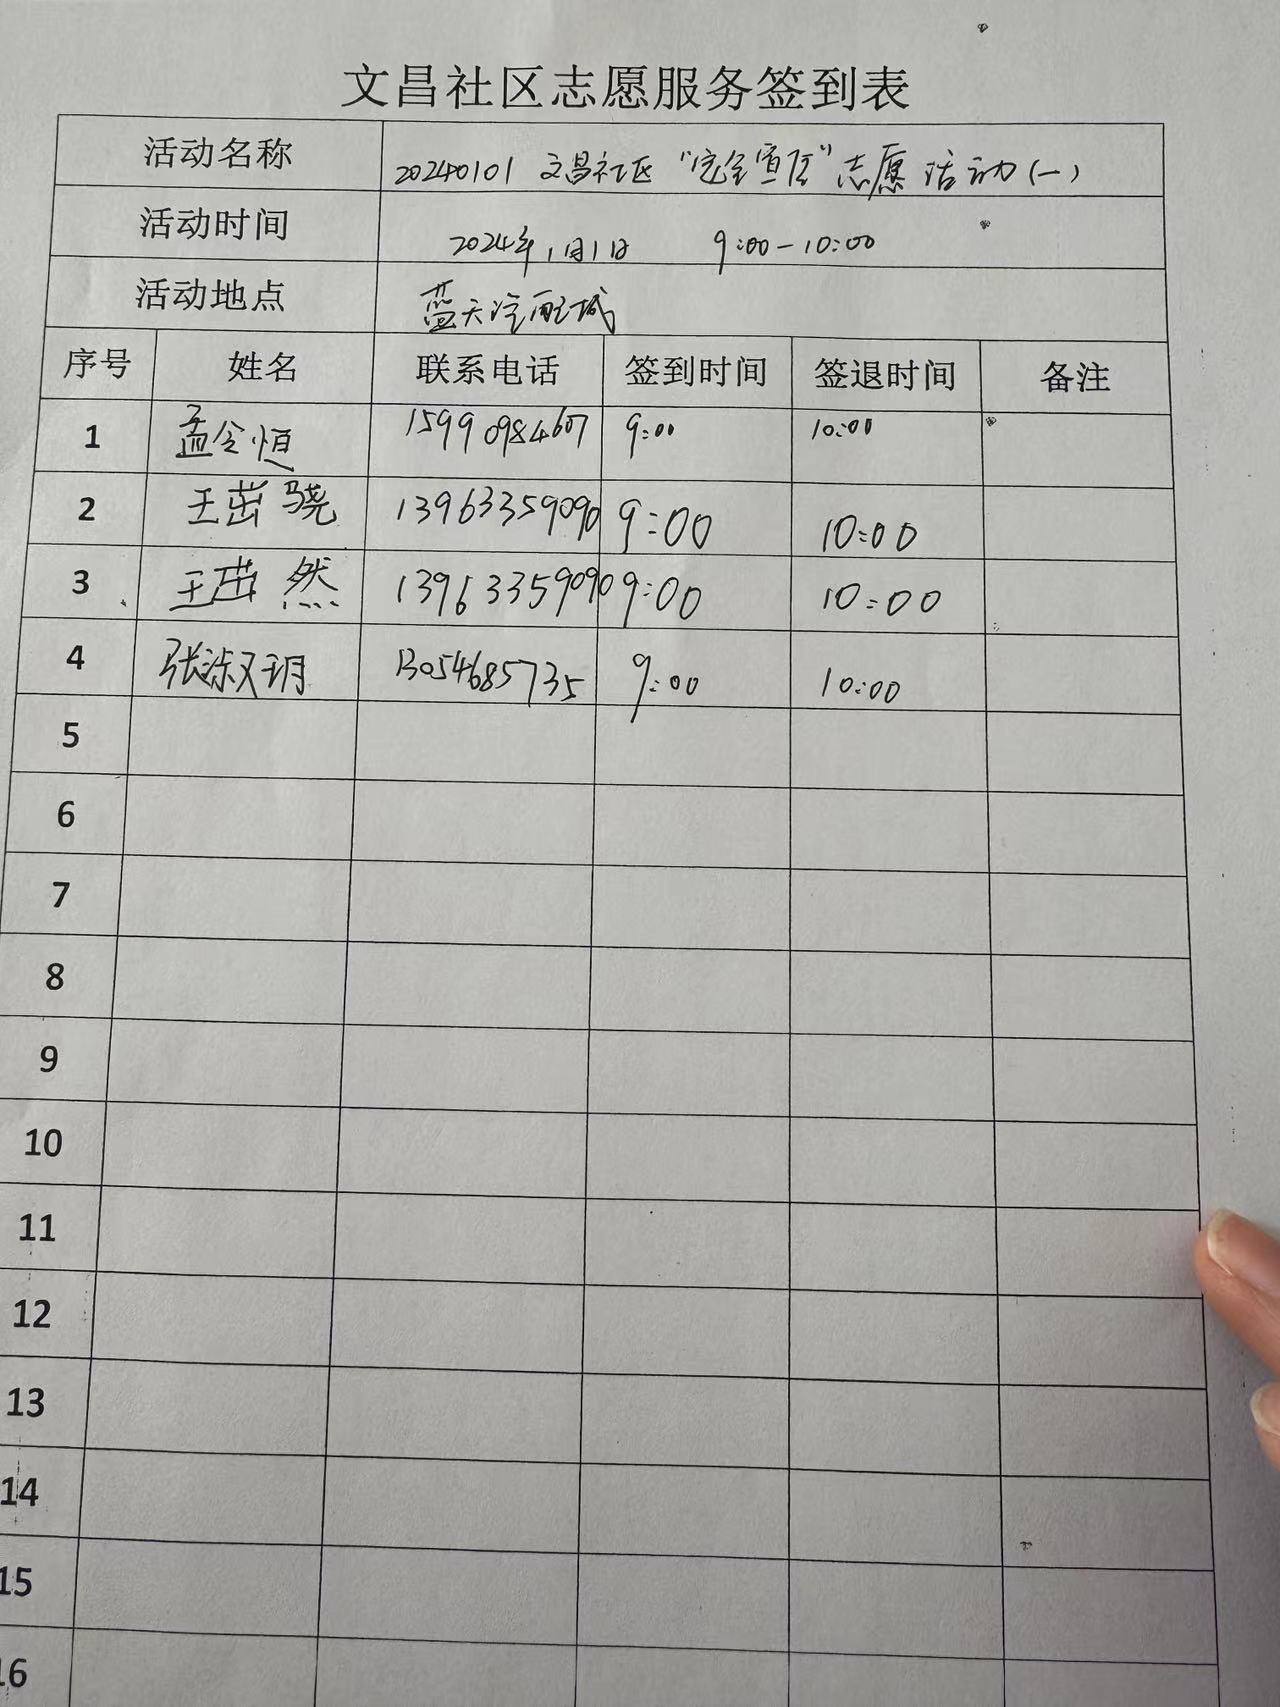 文昌社区志愿服务签到表
活动名称 20240101 文昌社区“完全宣传”志愿活动(一)
活动时间 2024年1月1日 9:00-10:00
活动地点 蓝天汽配城
序号 姓名 联系电话 签到时间 签退时间 备注
1 孟令恒 15990984607 9:00 10:00
2 王茁骁 13963359090 9:00 10:00
3 王茁然 13963359090 9:00 10:00
4 张淑玥 13054685735 9:00 10:00
5
6
7
8
9
10
11
12
13
14
15
16